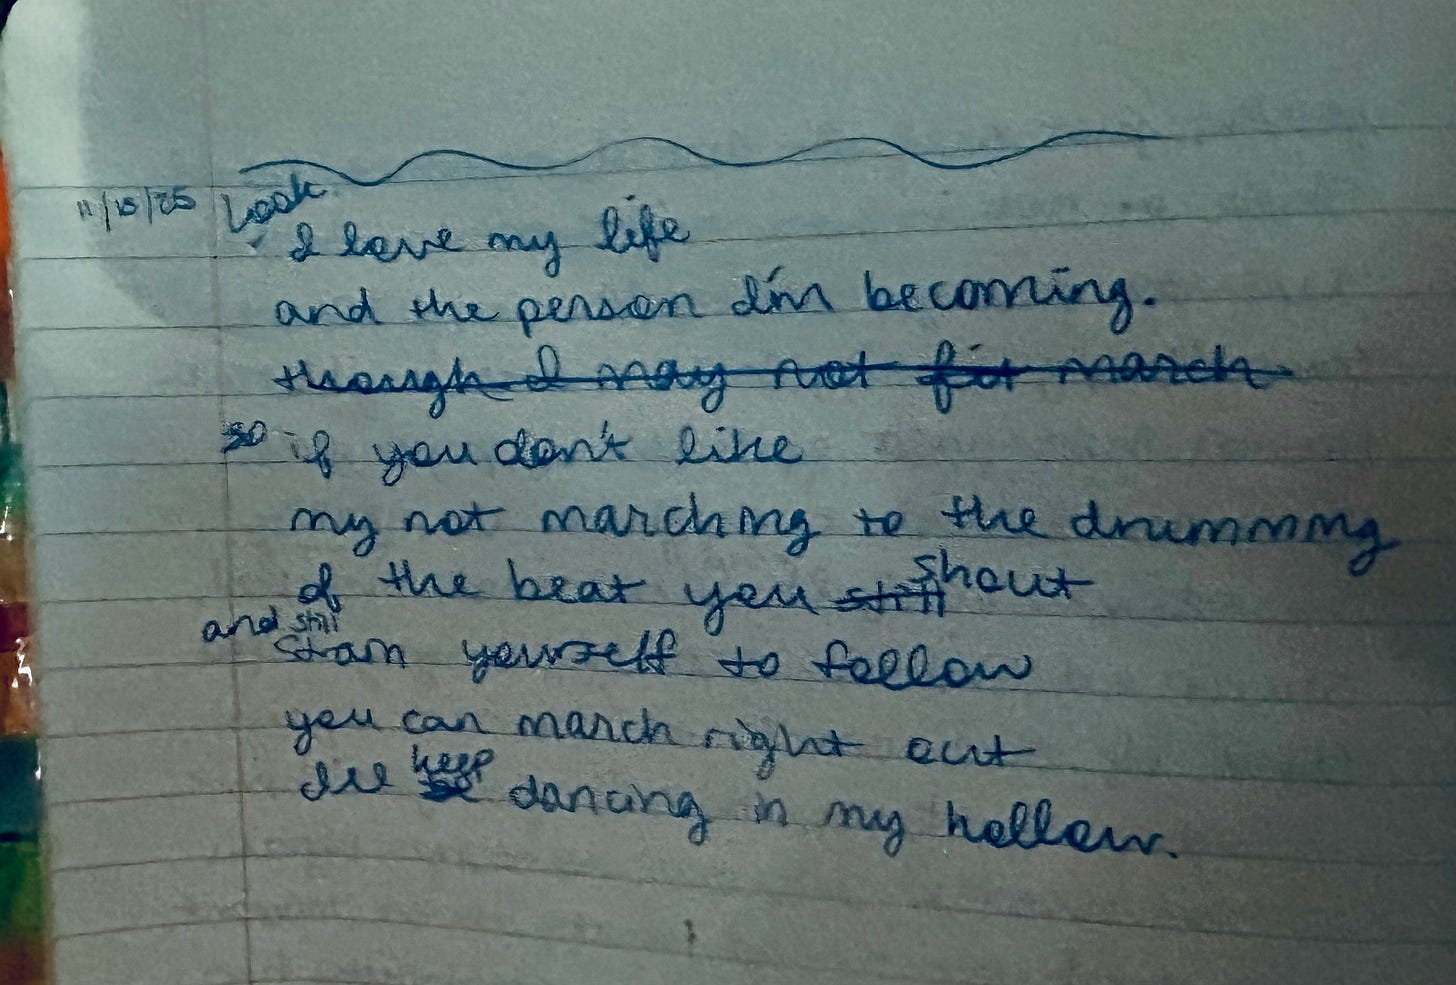 11/15/25 Look
I love my life
and the person I'm becoming.
though I may not fit march
so if you don't like
my not marching to the drumming
of the beat you still shout
and still
strain yourself to follow
you can march right out
I'll keep dancing in my hollow.